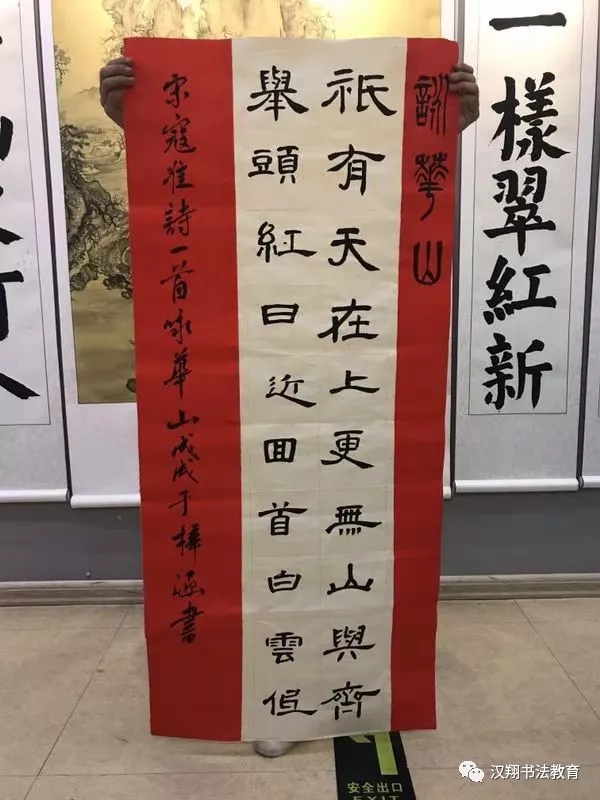 一樣翠紅新
詠華山
祇有天在上更無山與齊
舉頭紅日近回首白雲低
宋寇准詩一首咏華山戊戌于梓涵書
安全出口
EXIT
汉翔书法教育